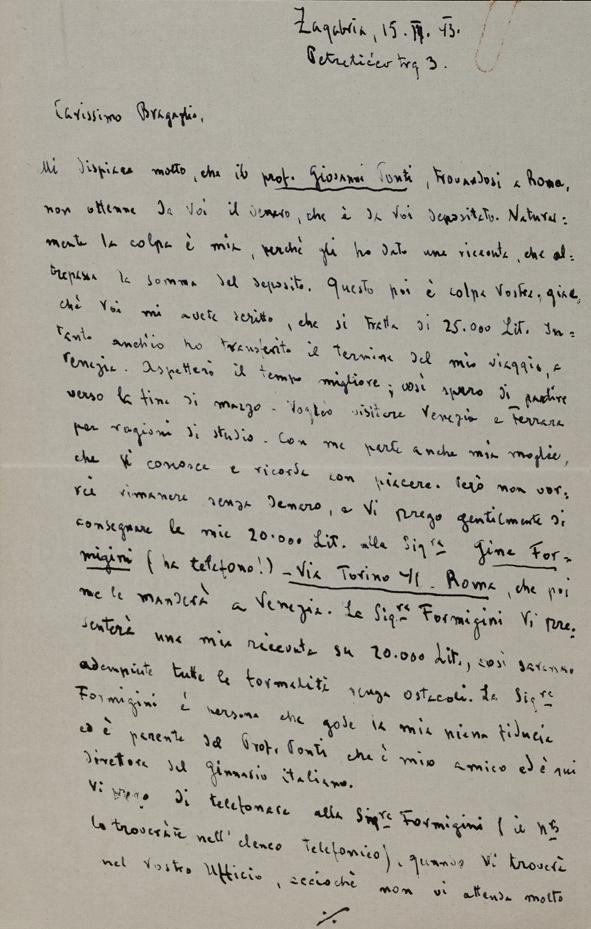 Zagabria, 15. II. 43.
Petretićev trg 3.
Carissimo Bragaglia,
Mi dispiace molto, che il prof. Giovanni Ponti, trovandosi a Roma,
non ottenne da Voi il denaro, che è da Voi depositato. Natural=
mente la colpa è mia, perchè gli ho dato una ricevuta, che ol=
trepassa la somma del deposito. Questo poi è colpa Vostra, giac
chè Voi mi avete scritto, che si tratta di 25.000 Lit. In=
tanto anch'io ho transferito il termine del mio viaggio, a
Venezia. Aspetterò il tempo migliore; così spero di partire
verso la fine di marzo. Voglio visitare Venezia e Ferrara
per ragioni di studio. Con me parte anche mia moglie,
che Vi conosce e ricorda con piacere. Però non vor=
rei rimanere senza denaro, e Vi prego gentilmente di
consegnare le mie 20.000 Lit. alla Sigra Gina For=
migini (ha telefono!) – Via Torino – Roma, che poi
me le manderà a Venezia. La Sigra Formigini Vi pre=
senterà una mia ricevuta su 20.000 Lit., così saranno
adempiute tutte le formalità senza ostacoli. La Sigra
Formigini è persona che gode la mia piena fiducia
ed è parente del Prof. Ponti che è mio amico ed è qui
direttore del ginnasio italiano.
Vi prego di telefonare alla Sigra Formigini (il nro
lo troverate nell'elenco telefonico), quando Vi troverà
nel Vostro Ufficio, acciochè non vi attenda molto
./.